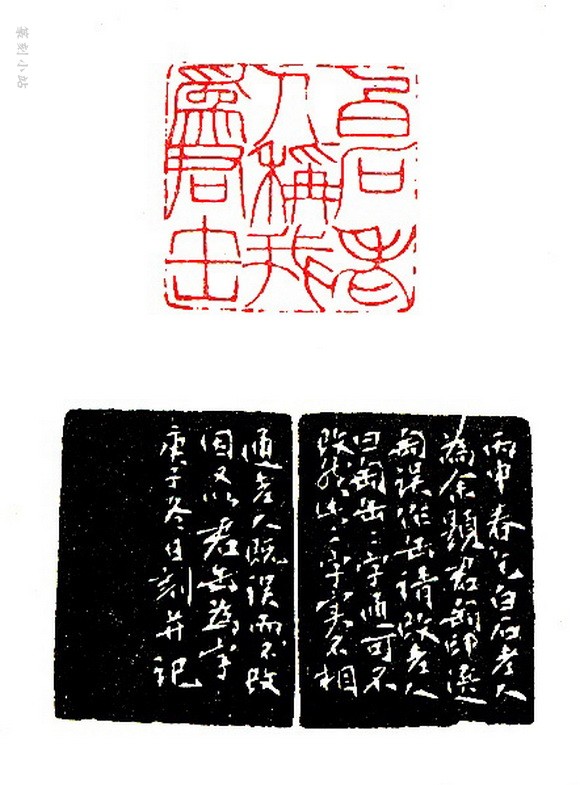 篆刻小站
白石老
人稱我
為君缶
丙申春乞白石老人
為余題君匋印選
匋誤作缶請改老人
曰匋缶二字通可不
改然此二字實不相
通老人既誤而不改
因又以君缶為字
庚子冬日刻并記